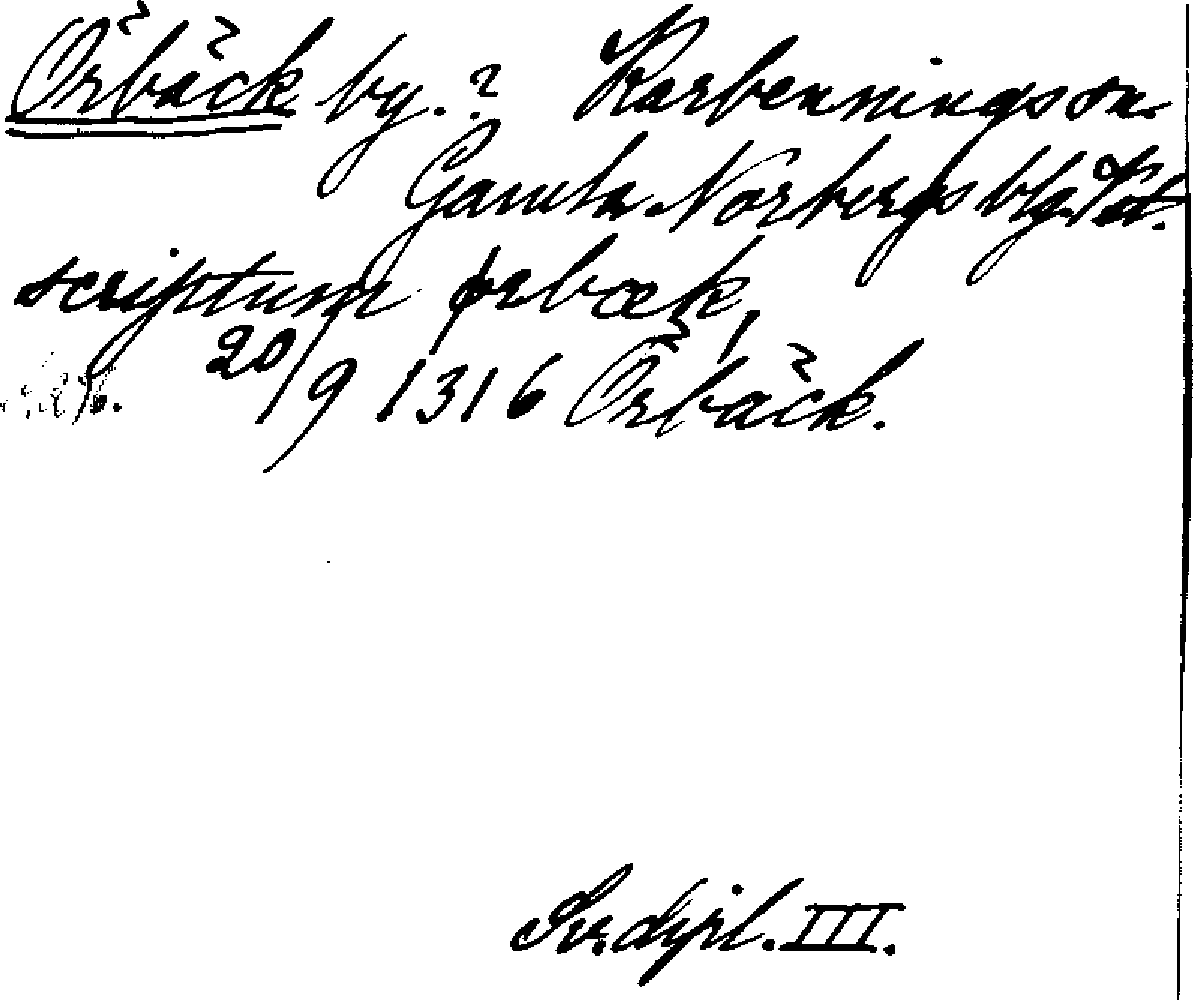 Örbäck by.? Karbenningssn.
Gamla Norbergs blg. Vst.
scriptum ørbæk,
20/9 1316 Örbäck.
Sv. dipl. III.